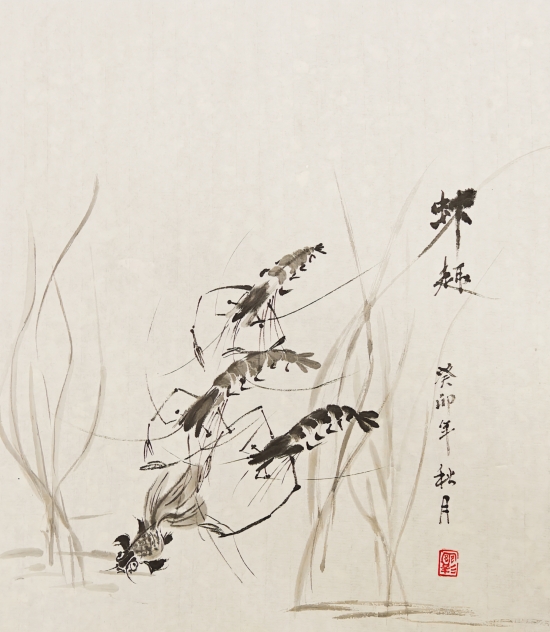 虾趣
癸卯年秋月